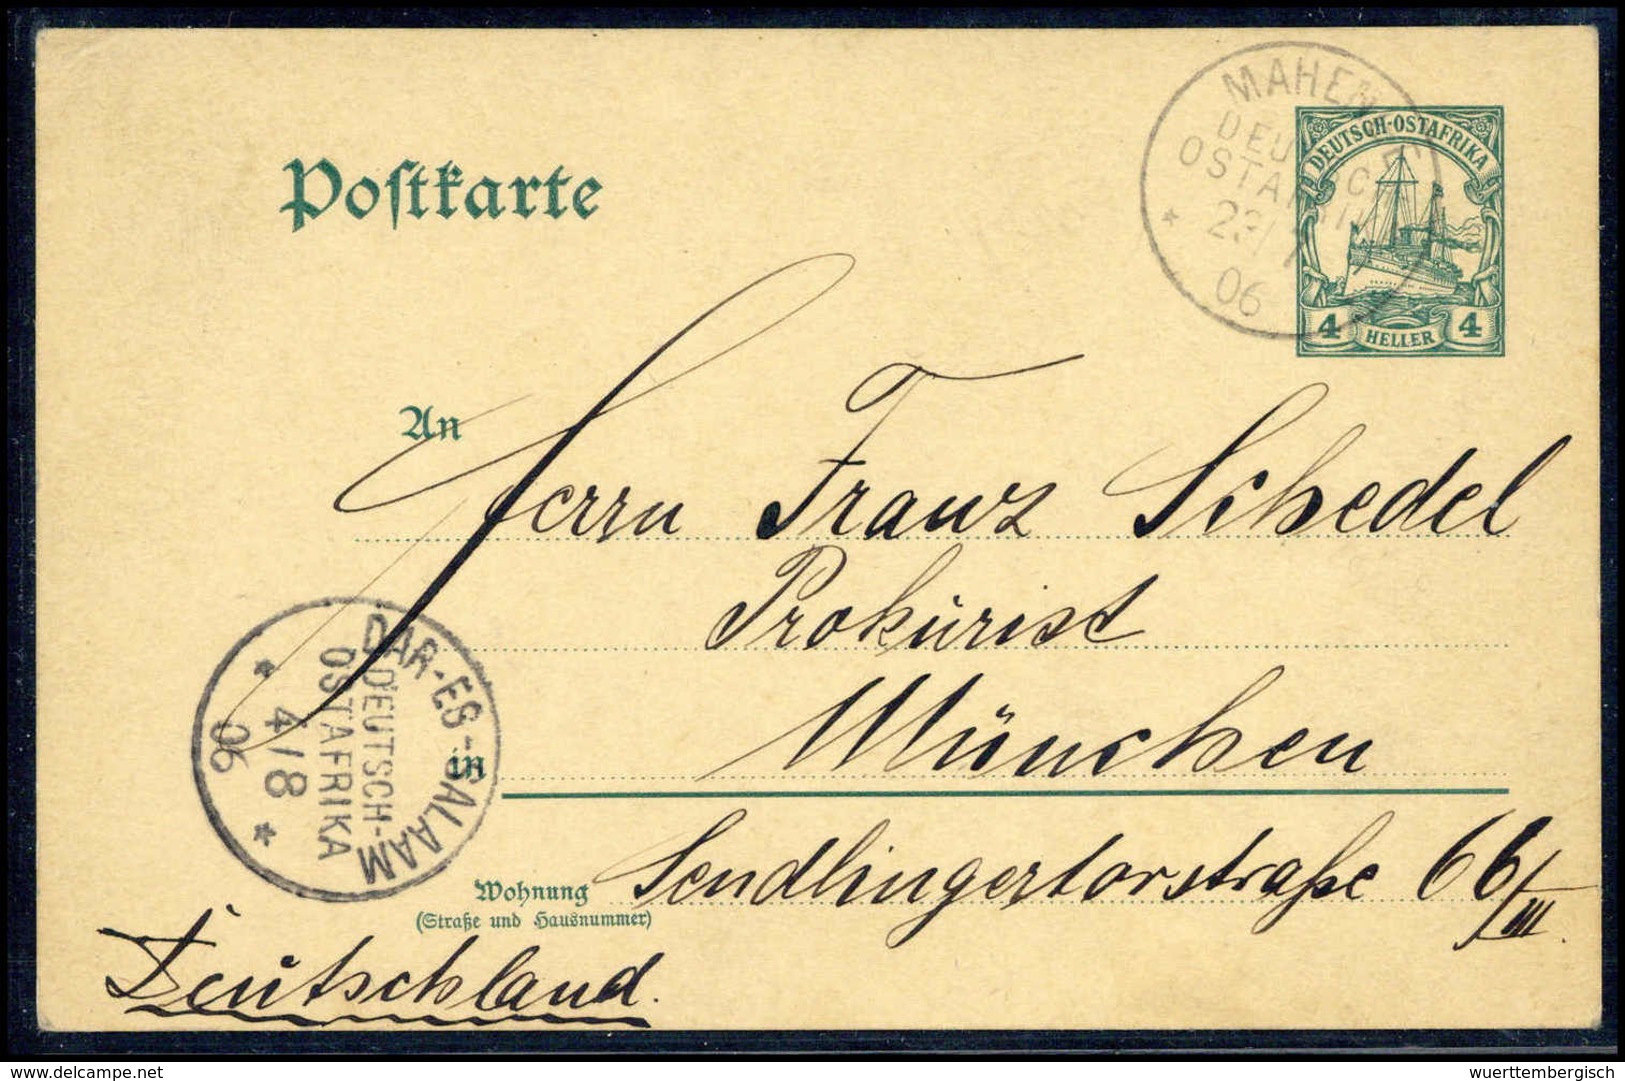 MAHEN
DEUTSCH-OSTAFRIKA
OSTAFRI
06
4 HELLER 4
Postkarte
An
Herrn Franz Schedel
Prokurist
in München
Wohnung Sendlingertorstraße 66/III.
(Straße und Hausnummer)
Deutschland.
DAR-ES-SALAAM
DEUTSCH-
OSTAFRIKA
4/8
06
www.delcampe.net
wuerttembergisch